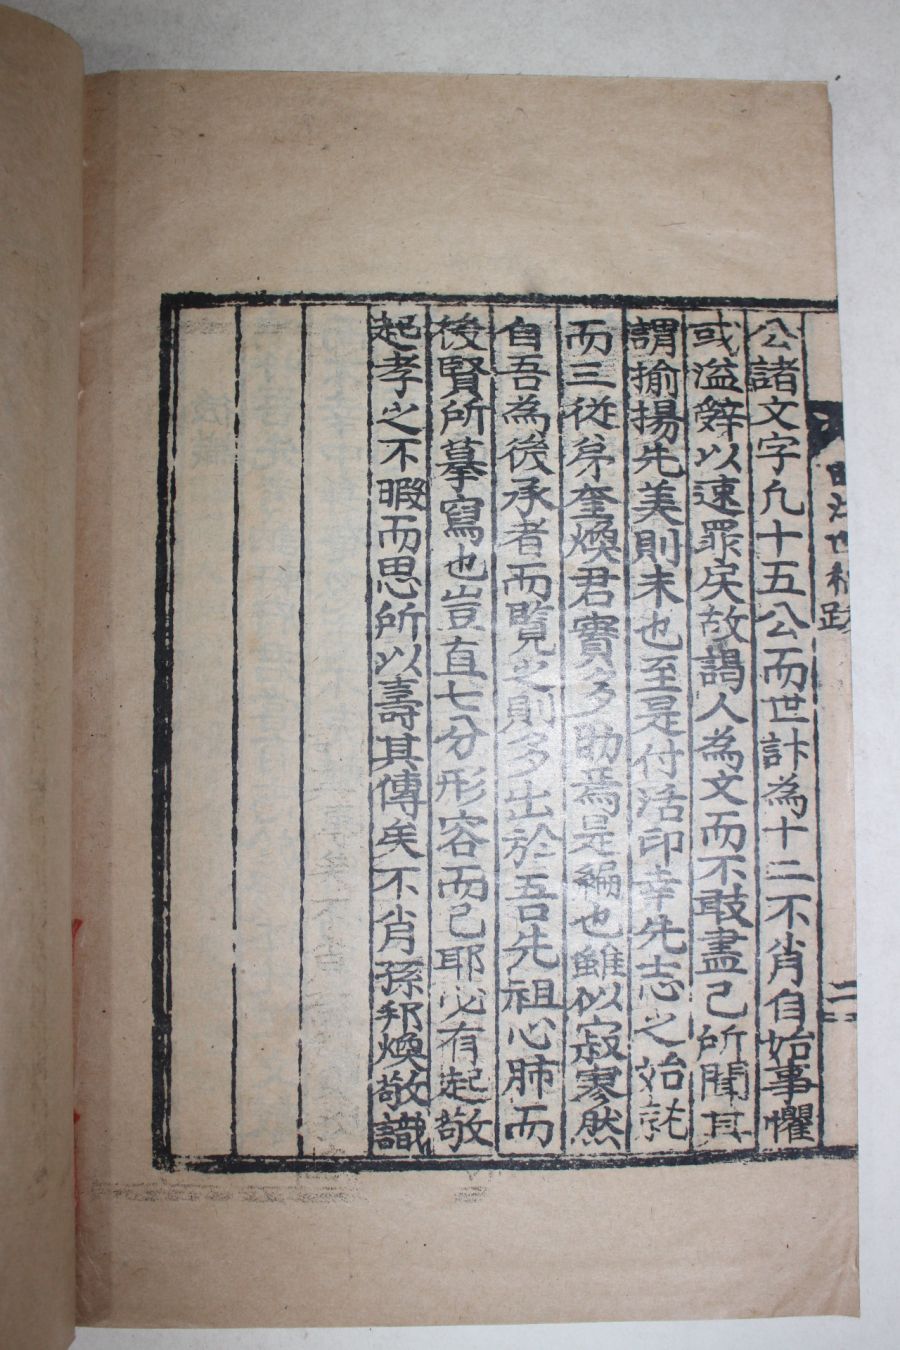 世稿跋
二
公諸文字凡十五公而世計為十二不肖自始事懼
或溢辭以速罪戾故謁人為文而不敢盡己所聞其
謂揄揚先美則未也至是付活印幸先志之始就
而三從弟奎煥君實多助焉是編也雖似寂寥然
自吾為後承者而覽之則多出於吾先祖心肺而
後賢所摹寫也豈直七分形容而已耶必有起敬
起孝之不暇而思所以壽其傳矣不肖孫邦煥敬識